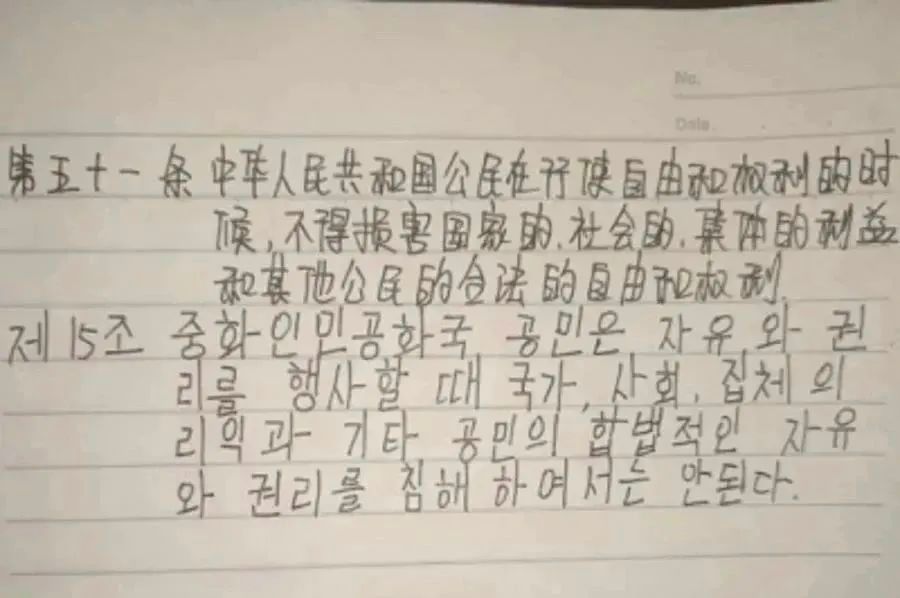 No.
Date.
第五十一条 中华人民共和国公民在行使自由和权利的时
候,不得损害国家的.社会的.集体的利益
和其他公民的合法的自由和权利.
제 15조 중화인민공화국 공민은 자유와 권
리를 행사할 때 국가, 사회. 집체의
리익과 기타 공민의 합법적인 자유
와 권리를 침해 하여서는 안된다.